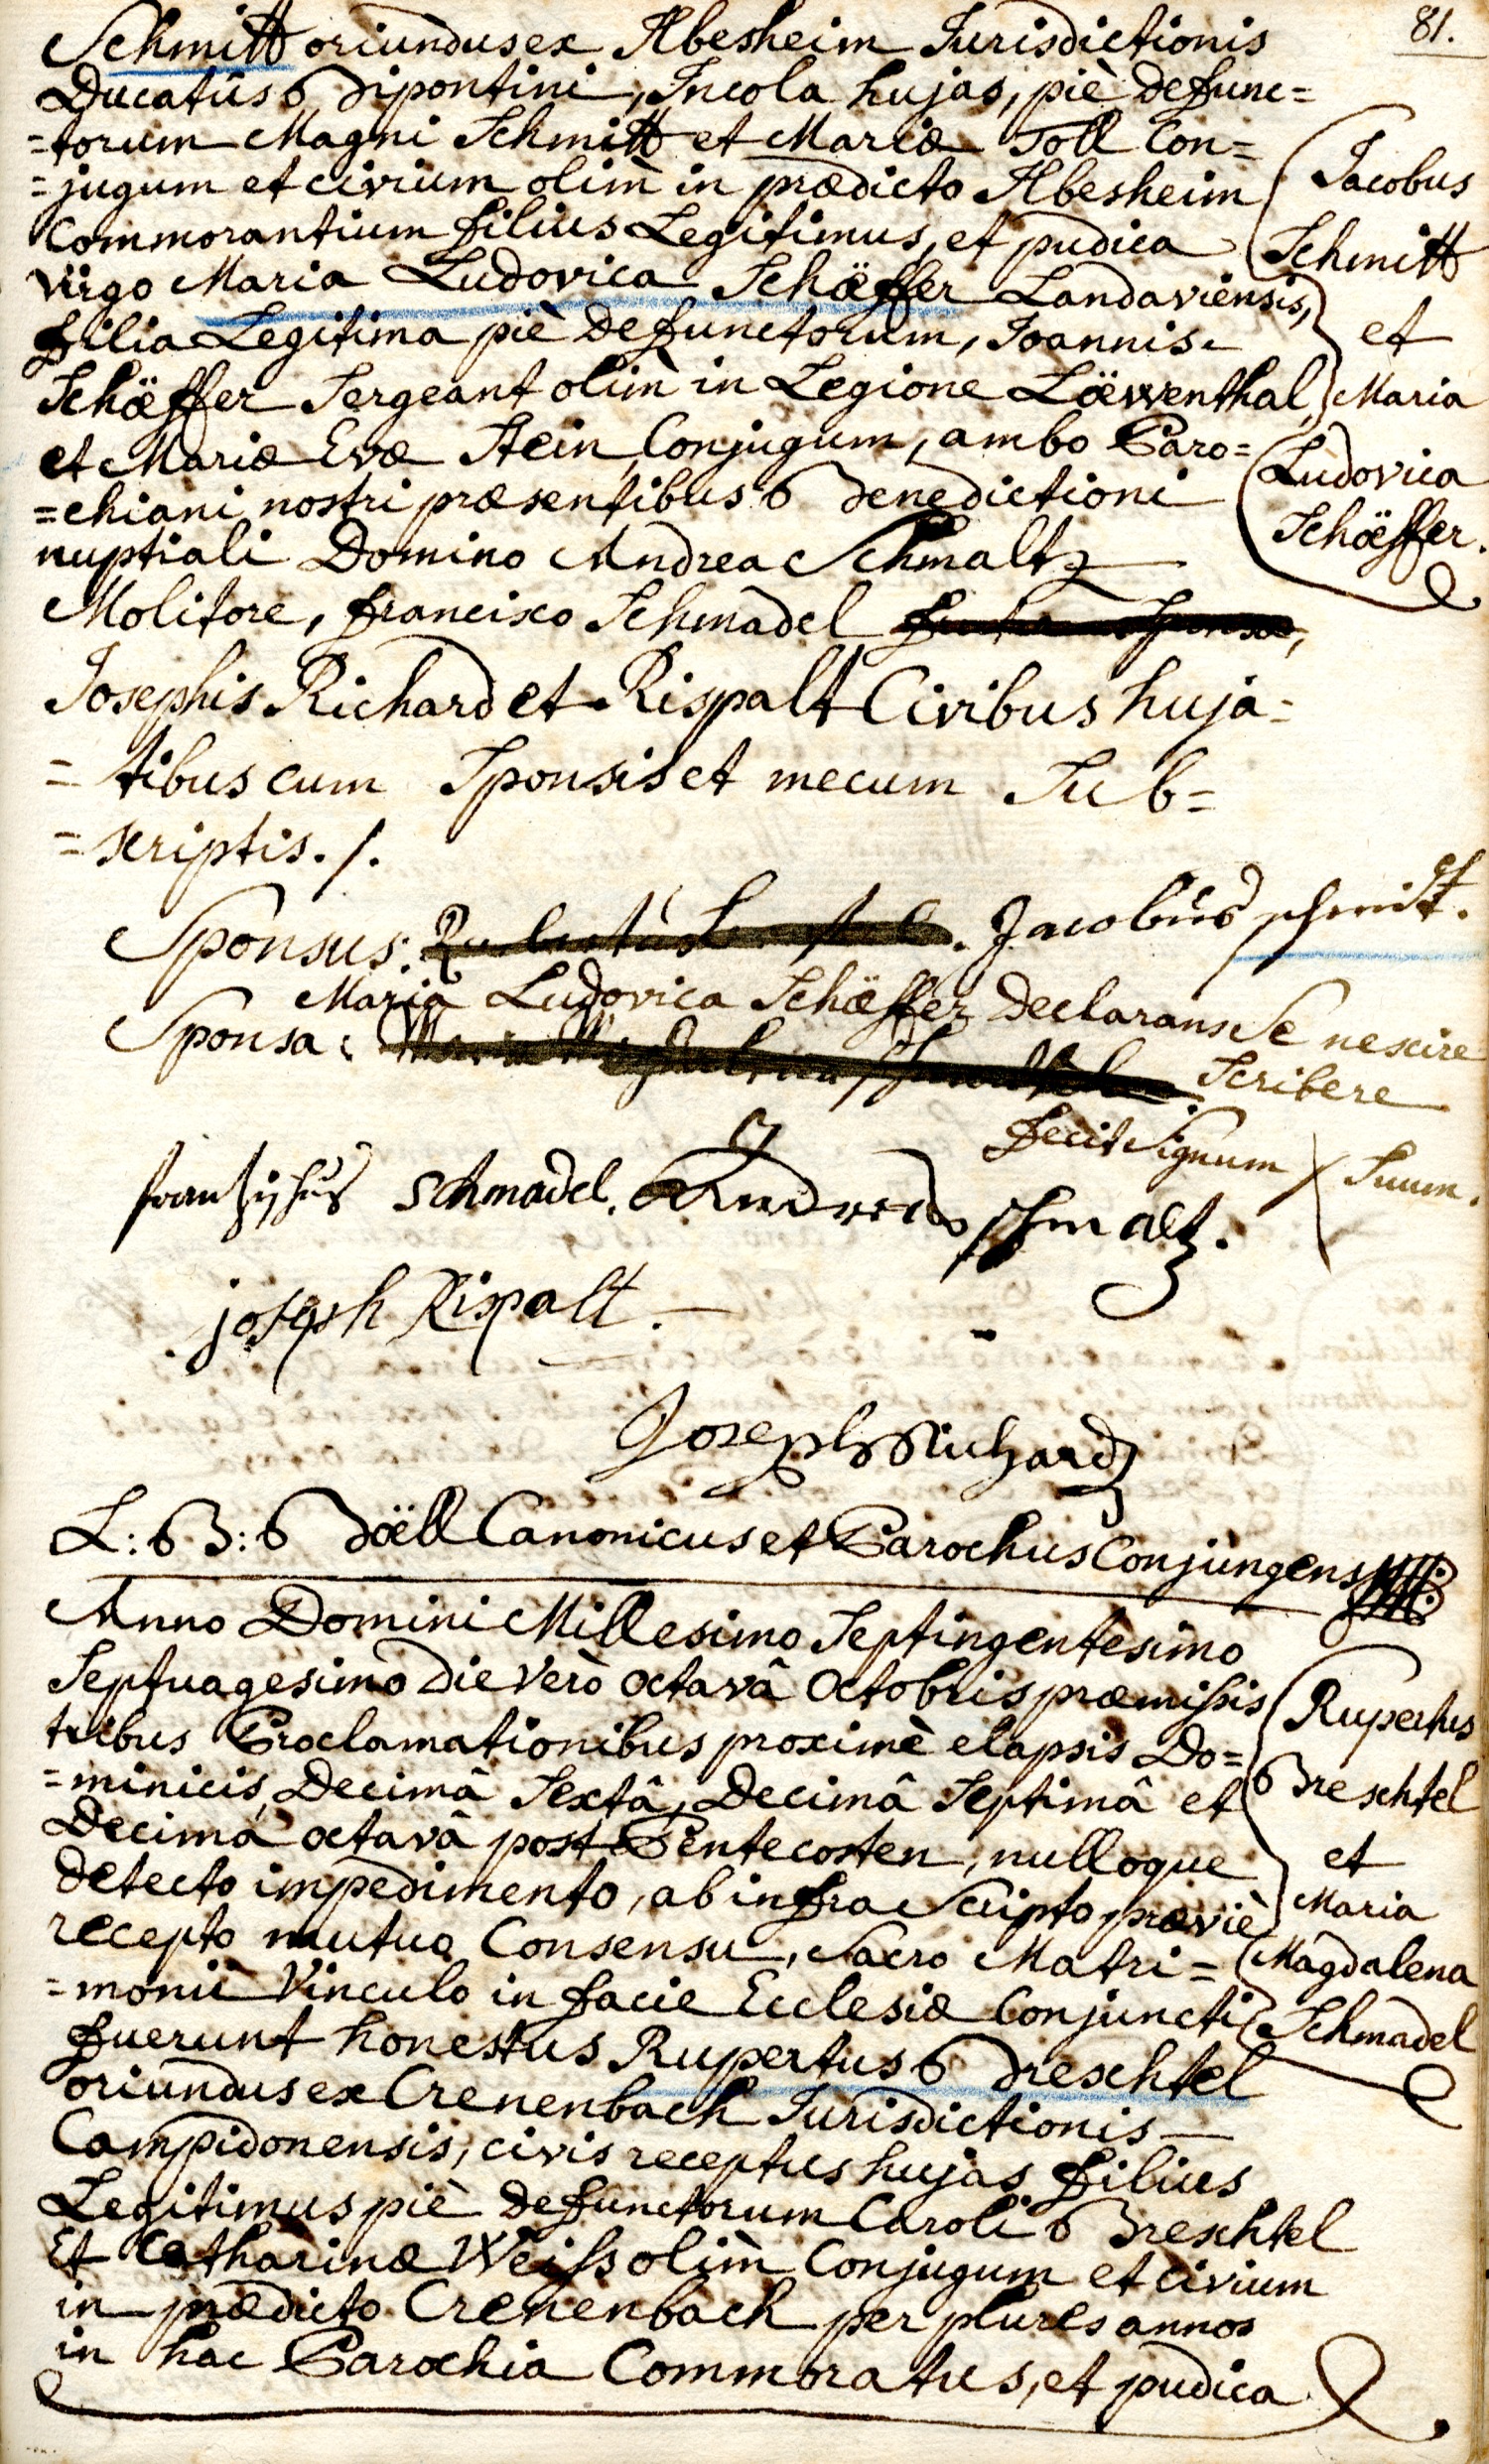 81.
Schmitt oriundus ex Abesheim Jurisdictionis
Ducatûs Bipontini, Incola hujas, piè defunc=
=torum Magni Schmitt et Mariæ Toll Con=
=jugum et civium olim in prædicto Abesheim
Commorantium filius Legitimus, et pudica
virgo Maria Ludovica Schöeffer Landaviensis,
filia Legitima piè defunctorum, Joannis
Schöeffer Sergeant olim in Legione Löewenthal,
et Mariæ Evæ Stein, Conjugum, ambo Paro=
=chiani nostri præsentibus Benedictioni
nuptiali Domino Andrea Schmaltz
Molitore, francisco Schmadel
Josephis Richard et Rispalt Civibus huja=
=tibus cum Sponsis et mecum Sub=
=scriptis./.
Jacobus
Schmitt
et
Maria
Ludovica
Schöeffer.
Sponsus: Jacobus schmitt.
Maria Ludovica Schöeffer declarans se nescire
Sponsa: Scribere
fecit Signum Suum.
frantzisus schmadel. Andreas schmaltz.
joseph Rispalt.
Joseph Richard
L: B: Böell Canonicus et Parochus Conjungens
Anno Domini Millesimo Septingentesimo
Septuagesimo die verò octavâ octobris præmissis
tribus Proclamationibus proximè elapsis Do=
=minicis, Decimâ Sextâ, Decimâ Septimâ et
Decimâ octavâ post Pentecosten, nulloque
detecto impedimento, ab infra Scripto præviè
recepto mutuo Consensu, Sacro Matri=
=monii Vinculo in facie Ecclesiæ Conjuncti
fuerunt honestus Rupertus Breschtel
oriundus ex Crenenbach Jurisdictionis
Campidonensis, civis receptus hujas filius
Legitimus piè defunctorum Caroli Breschtel
Et Catharinæ Weiss olim Conjugum et civium
in prædicto Crenenbach per plures annos
in hac Parochia Commoratus, et pudica
Rupertus
Breschtel
et
Maria
Magdalena
Schmadel